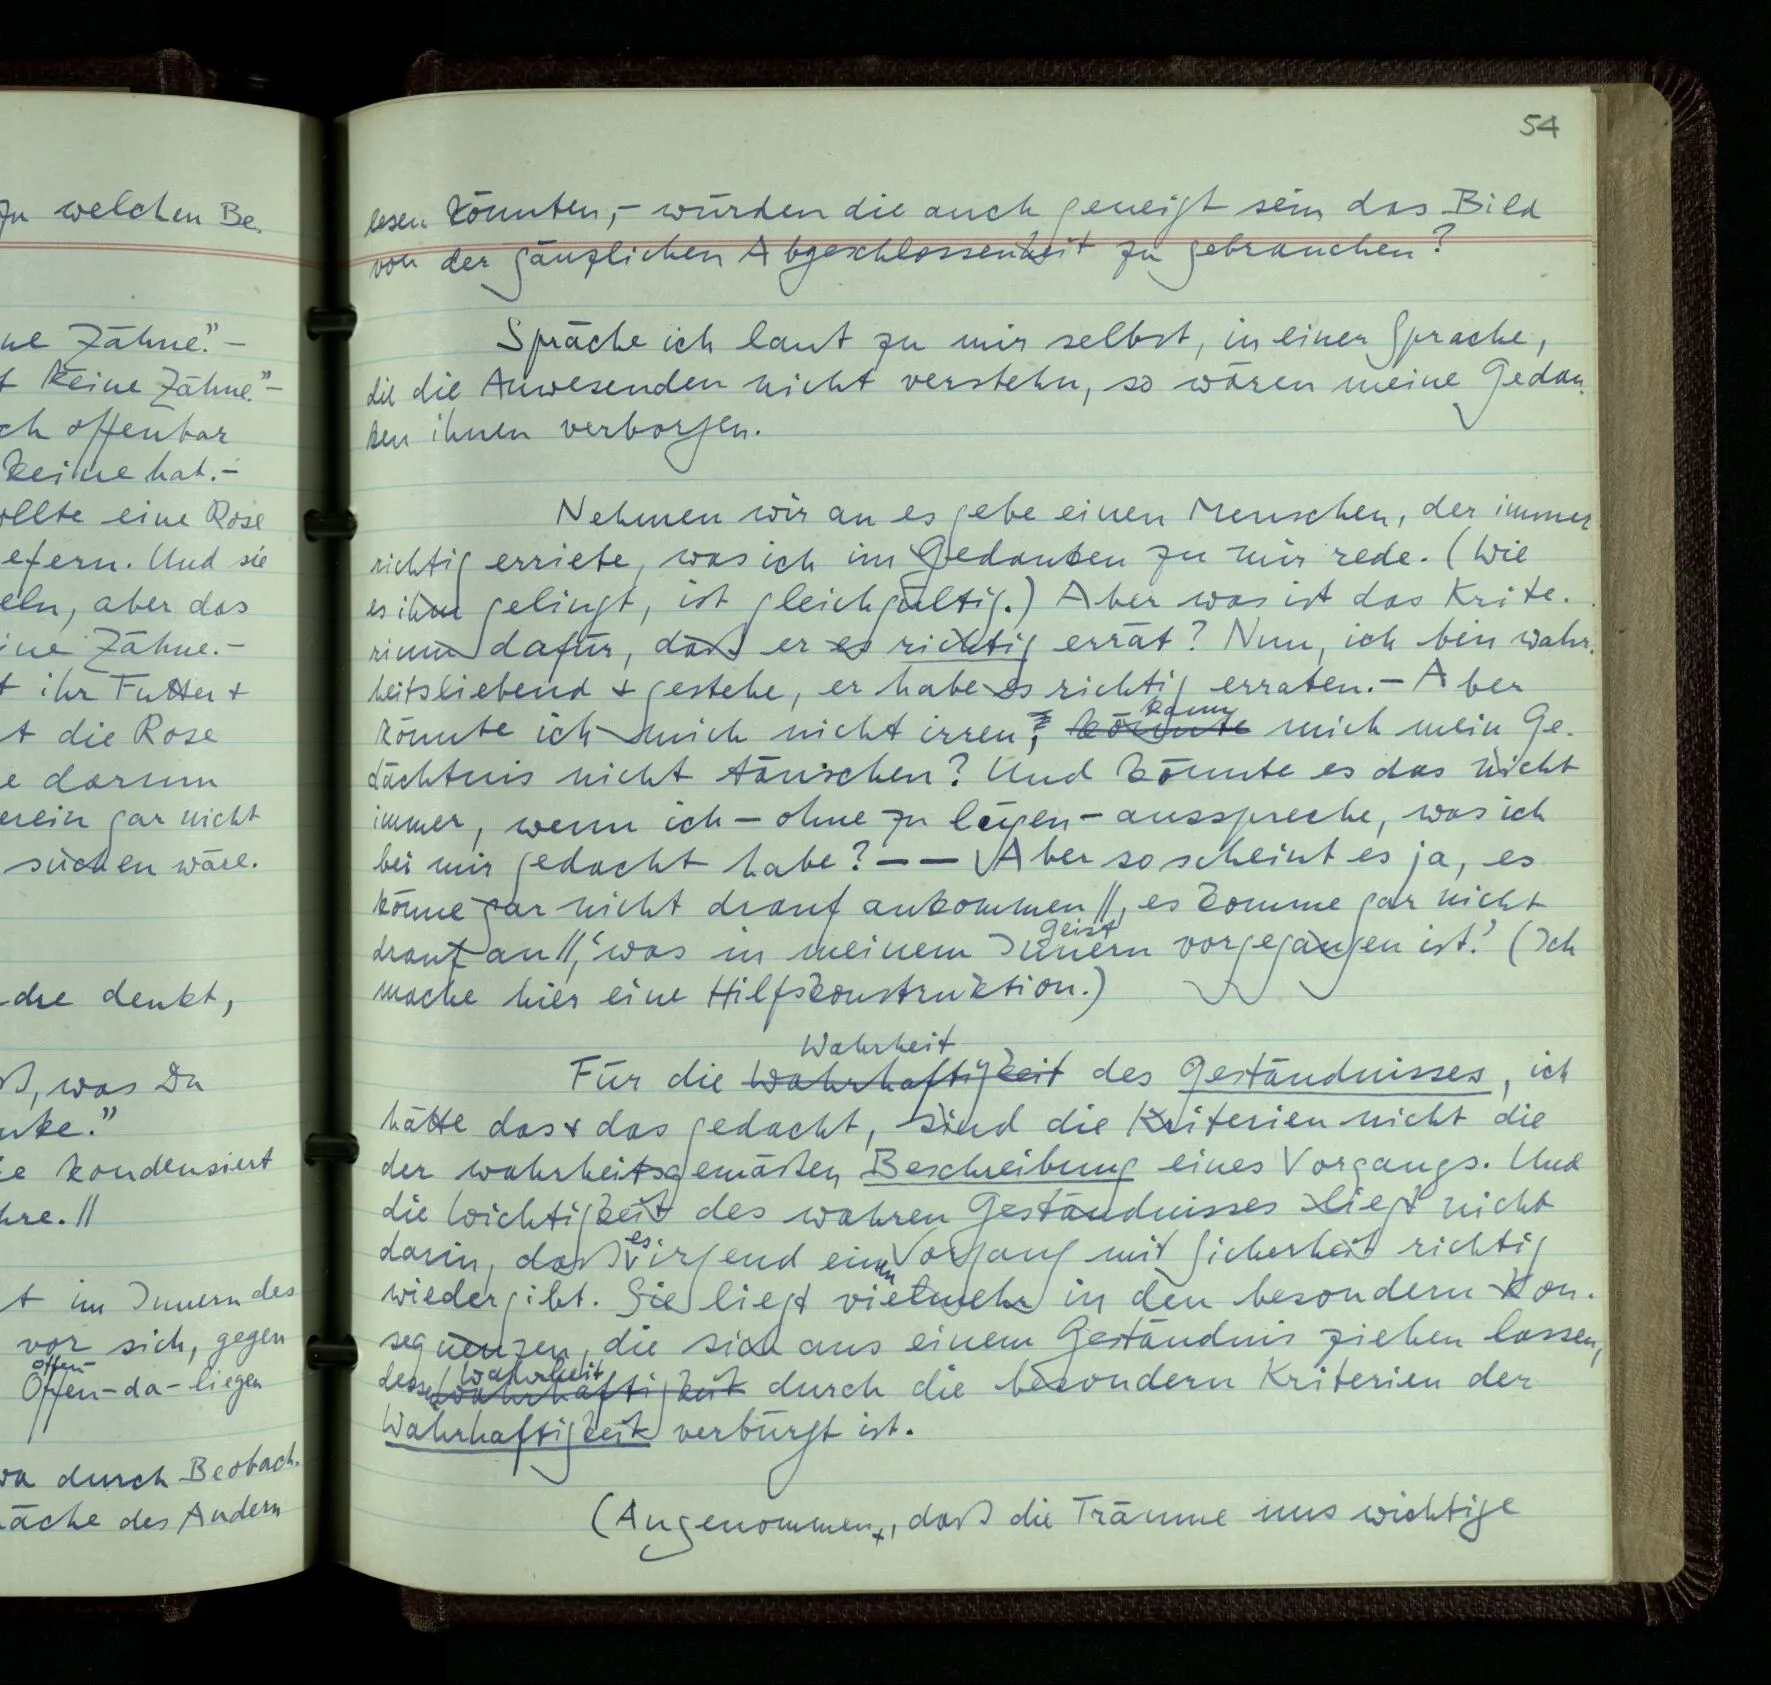 zu welchen Be.
ne Zähne."–
t keine Zähne."–
ch offenbar
keine hat.–
ollte eine Rose
efern. Und sie
eln, aber das
ine Zähne.–
t ihr Futter +
t die Rose
e darum
erein gar nicht
suchen wäre.
dre denkt,
ß, was Du
nke."
ie kondensiert
hre. //
t im Innern des
vor sich, gegen
offen-
Offen-da-liegen
wa durch Beobach-
räche des Andern
54
lesen könnten,– würden die auch geneigt sein das Bild
von der gänzlichen Abgeschlossenheit zu gebrauchen?
Spräche ich laut zu mir selbst, in einer Sprache,
die die Anwesenden nicht verstehn, so wären meine Gedan-
ken ihnen verborgen.
Nehmen wir an es gebe einen Menschen, der immer
richtig erriete, was ich im Gedanken zu mir rede. (Wie
es ihm gelingt, ist gleichgültig.) Aber was ist das Krite-
rium dafür, daß er es richtig errät? Nun, ich bin wahr-
heitsliebend + gestehe, er habe es richtig erraten.– Aber
könnte ich mich nicht irren, könnte kann mich mein Ge-
dächtnis nicht täuschen? Und könnte es das nicht
immer, wenn ich – ohne zu lügen – ausspreche, was ich
bei mir gedacht habe? – – Aber so scheint es ja, es
könne gar nicht drauf ankommen //, es komme gar nicht
drauf an //, 'was in meinem Innern Geist vorgegangen ist.' (Ich
mache hier eine Hilfskonstruktion.)
Wahrheit
Für die Wahrhaftigkeit des Geständnisses, ich
hätte das + das gedacht, sind die Kriterien nicht die
der wahrheitsgemäßen Beschreibung eines Vorgangs. Und
die Wichtigkeit des wahren Geständnisses liegt nicht
darin, daß es irgend einen Vorgang mit Sicherheit richtig
wiedergibt. Sie liegt vielmehr in den besondern Kon-
sequenzen, die sich aus einem Geständnis ziehen lassen,
dessen Wahrhaftigkeit Wahrheit durch die besondern Kriterien der
Wahrhaftigkeit verbürgt ist.
(Angenommen, daß die Träume uns wichtige